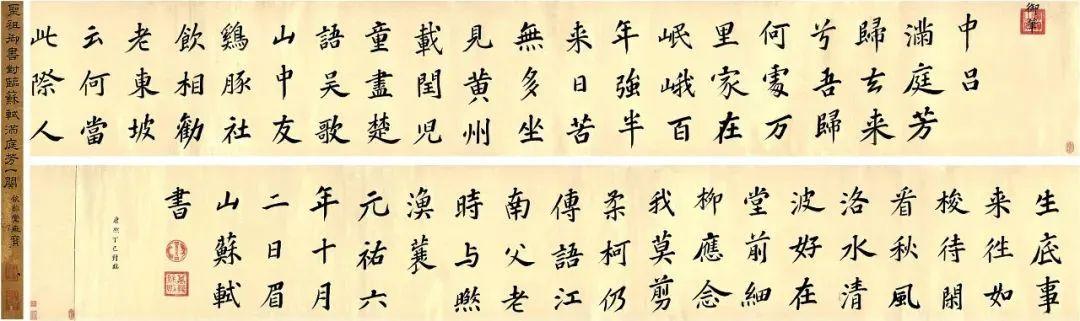 御筆
中呂
滿庭芳
歸去来
兮吾歸
何處万
里家在
岷峨百
年強半
来日苦
無多坐
見黄州
載閏児
童盡楚
語吴歌
山中友
鷄豚社
飲相勸
老東坡
云何當
此際人
生底事
来徃如
梭待閑
看秋風
洛水清
波好在
堂前細
柳應念
我莫剪
柔柯仍
傳語江
南父老
時与
漁蓑
元祐六
年十月
二日眉
山蘇軾
書
康熙丁巳對臨
聖祖御書對臨蘇軾滿庭芳一闋